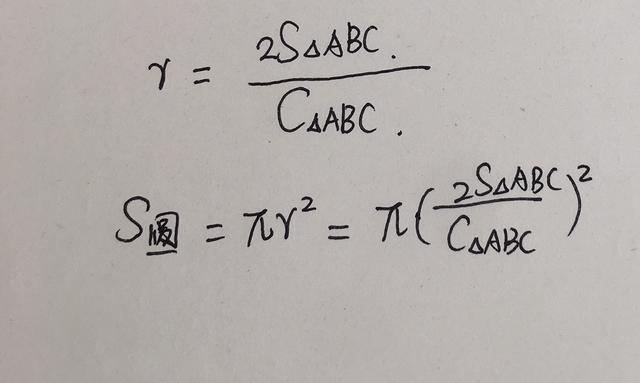 r = 2S△ABC. / C△ABC.
S圆 = πr² = π(2S△ABC / C△ABC)²